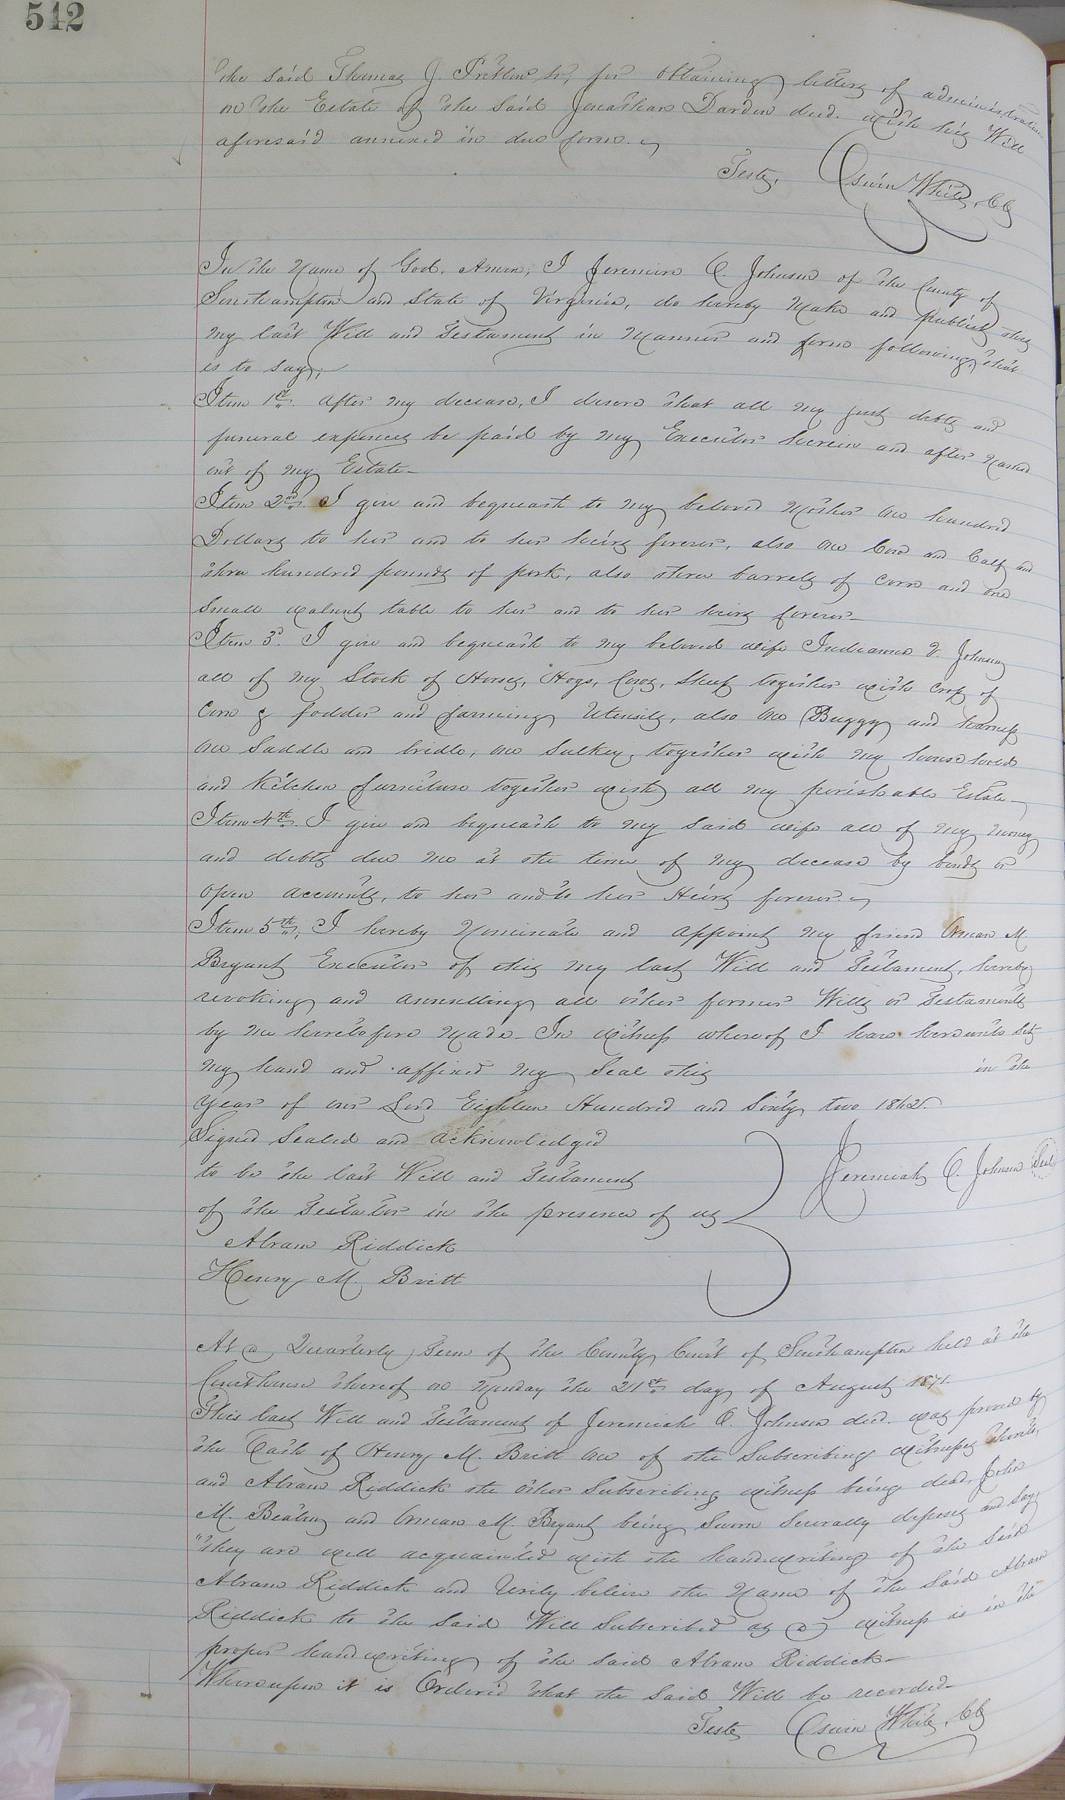 542
the said Thomas J. Pretlow sr, for obtaining letters of administration
on the Estate of the said Jonathan Darden decd. with his Will
aforesaid annexed in due form.
Teste, Oswin White, CC
In the Name of God, Amen, I Jeremiah C. Johnson of the County of
Southampton and State of Virginia, do hereby Make and publish this
My last Will and Testament in Manner and form following, that
is to say;
Item 1st. After my decease, I desire that all my just debts and
funeral expences be paid by my Executor herein and after Named
out of my Estate.
Item 2nd. I give and bequeath to my beloved Mother one hundred
Dollars to her and to her heirs forever, also one Cow and Calf and
three hundred pounds of pork, also three barrels of corn and one
small walnut table to her and to her heirs forever.
Item 3d. I give and bequeath to my beloved wife Indianna V. Johnson
all of my Stock of Horses, Hogs, Cows, Sheep together with crop of
Corn & fodder and farming Utensils, also one Buggy and harness
one Saddle and bridle, one Sulkey, together with my house hold
and Kitchen furniture together with all my perishable Estate.
Item 4th. I give and bequeath to my said wife all of my money
and debts due me at the time of my decease by bonds or
open accounts, to her and to her Heirs forever.
Item 5th, I hereby Nominate and appoint my friend Orman M.
Bryant Executor of this my last Will and Testament, hereby
revoking and annulling all other former Wills or Testaments
by me heretofore Made. In witness whereof I have hereunto set
my hand and affixed my Seal this in the
Year of our Lord Eighteen Hundred and Sixty two 1862.
Signed Sealed and acknowledged
to be the last Will and Testament
of the Testator in the presence of us
Jeremiah C. Johnson Seal
Abram Riddick
Henry M. Britt
At a Quarterly Term of the County Court of Southampton held at the
Courthouse thereof on Monday the 21st day of August 1871.
This last Will and Testament of Jeremiah C. Johnson decd. was proved by
the Oath of Henry M. Britt one of the Subscribing witnesses thereto,
and Abram Riddick the other Subscribing witness being dead, John
M. Beatey and Orman M. Bryant being Sworn Severally deposes and Say,
"they are well acquainted with the handwriting of the said
Abram Riddick and Verily believe the Name of the said Abram
Riddick to the said Will Subscribed as a witness is in the
proper handwriting of the said Abram Riddick.
Whereupon it is Ordered that the said Will be recorded.
Teste Oswin White, CC